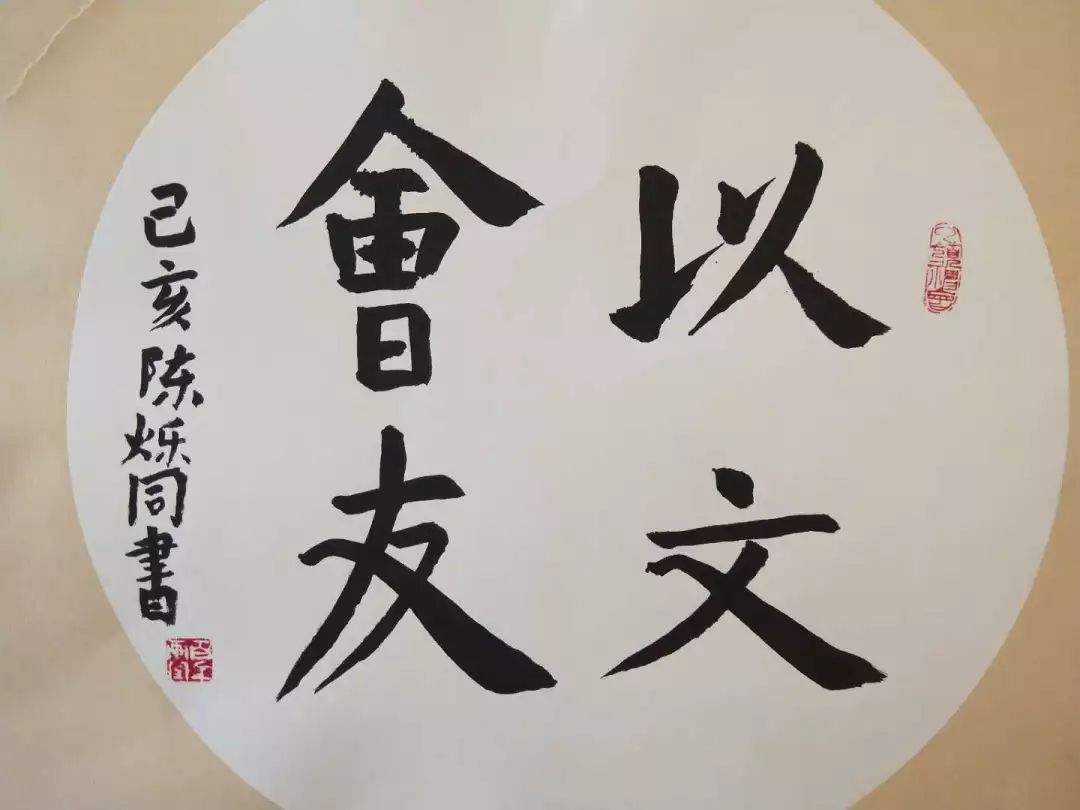 以文
會友
己亥陈烁同書